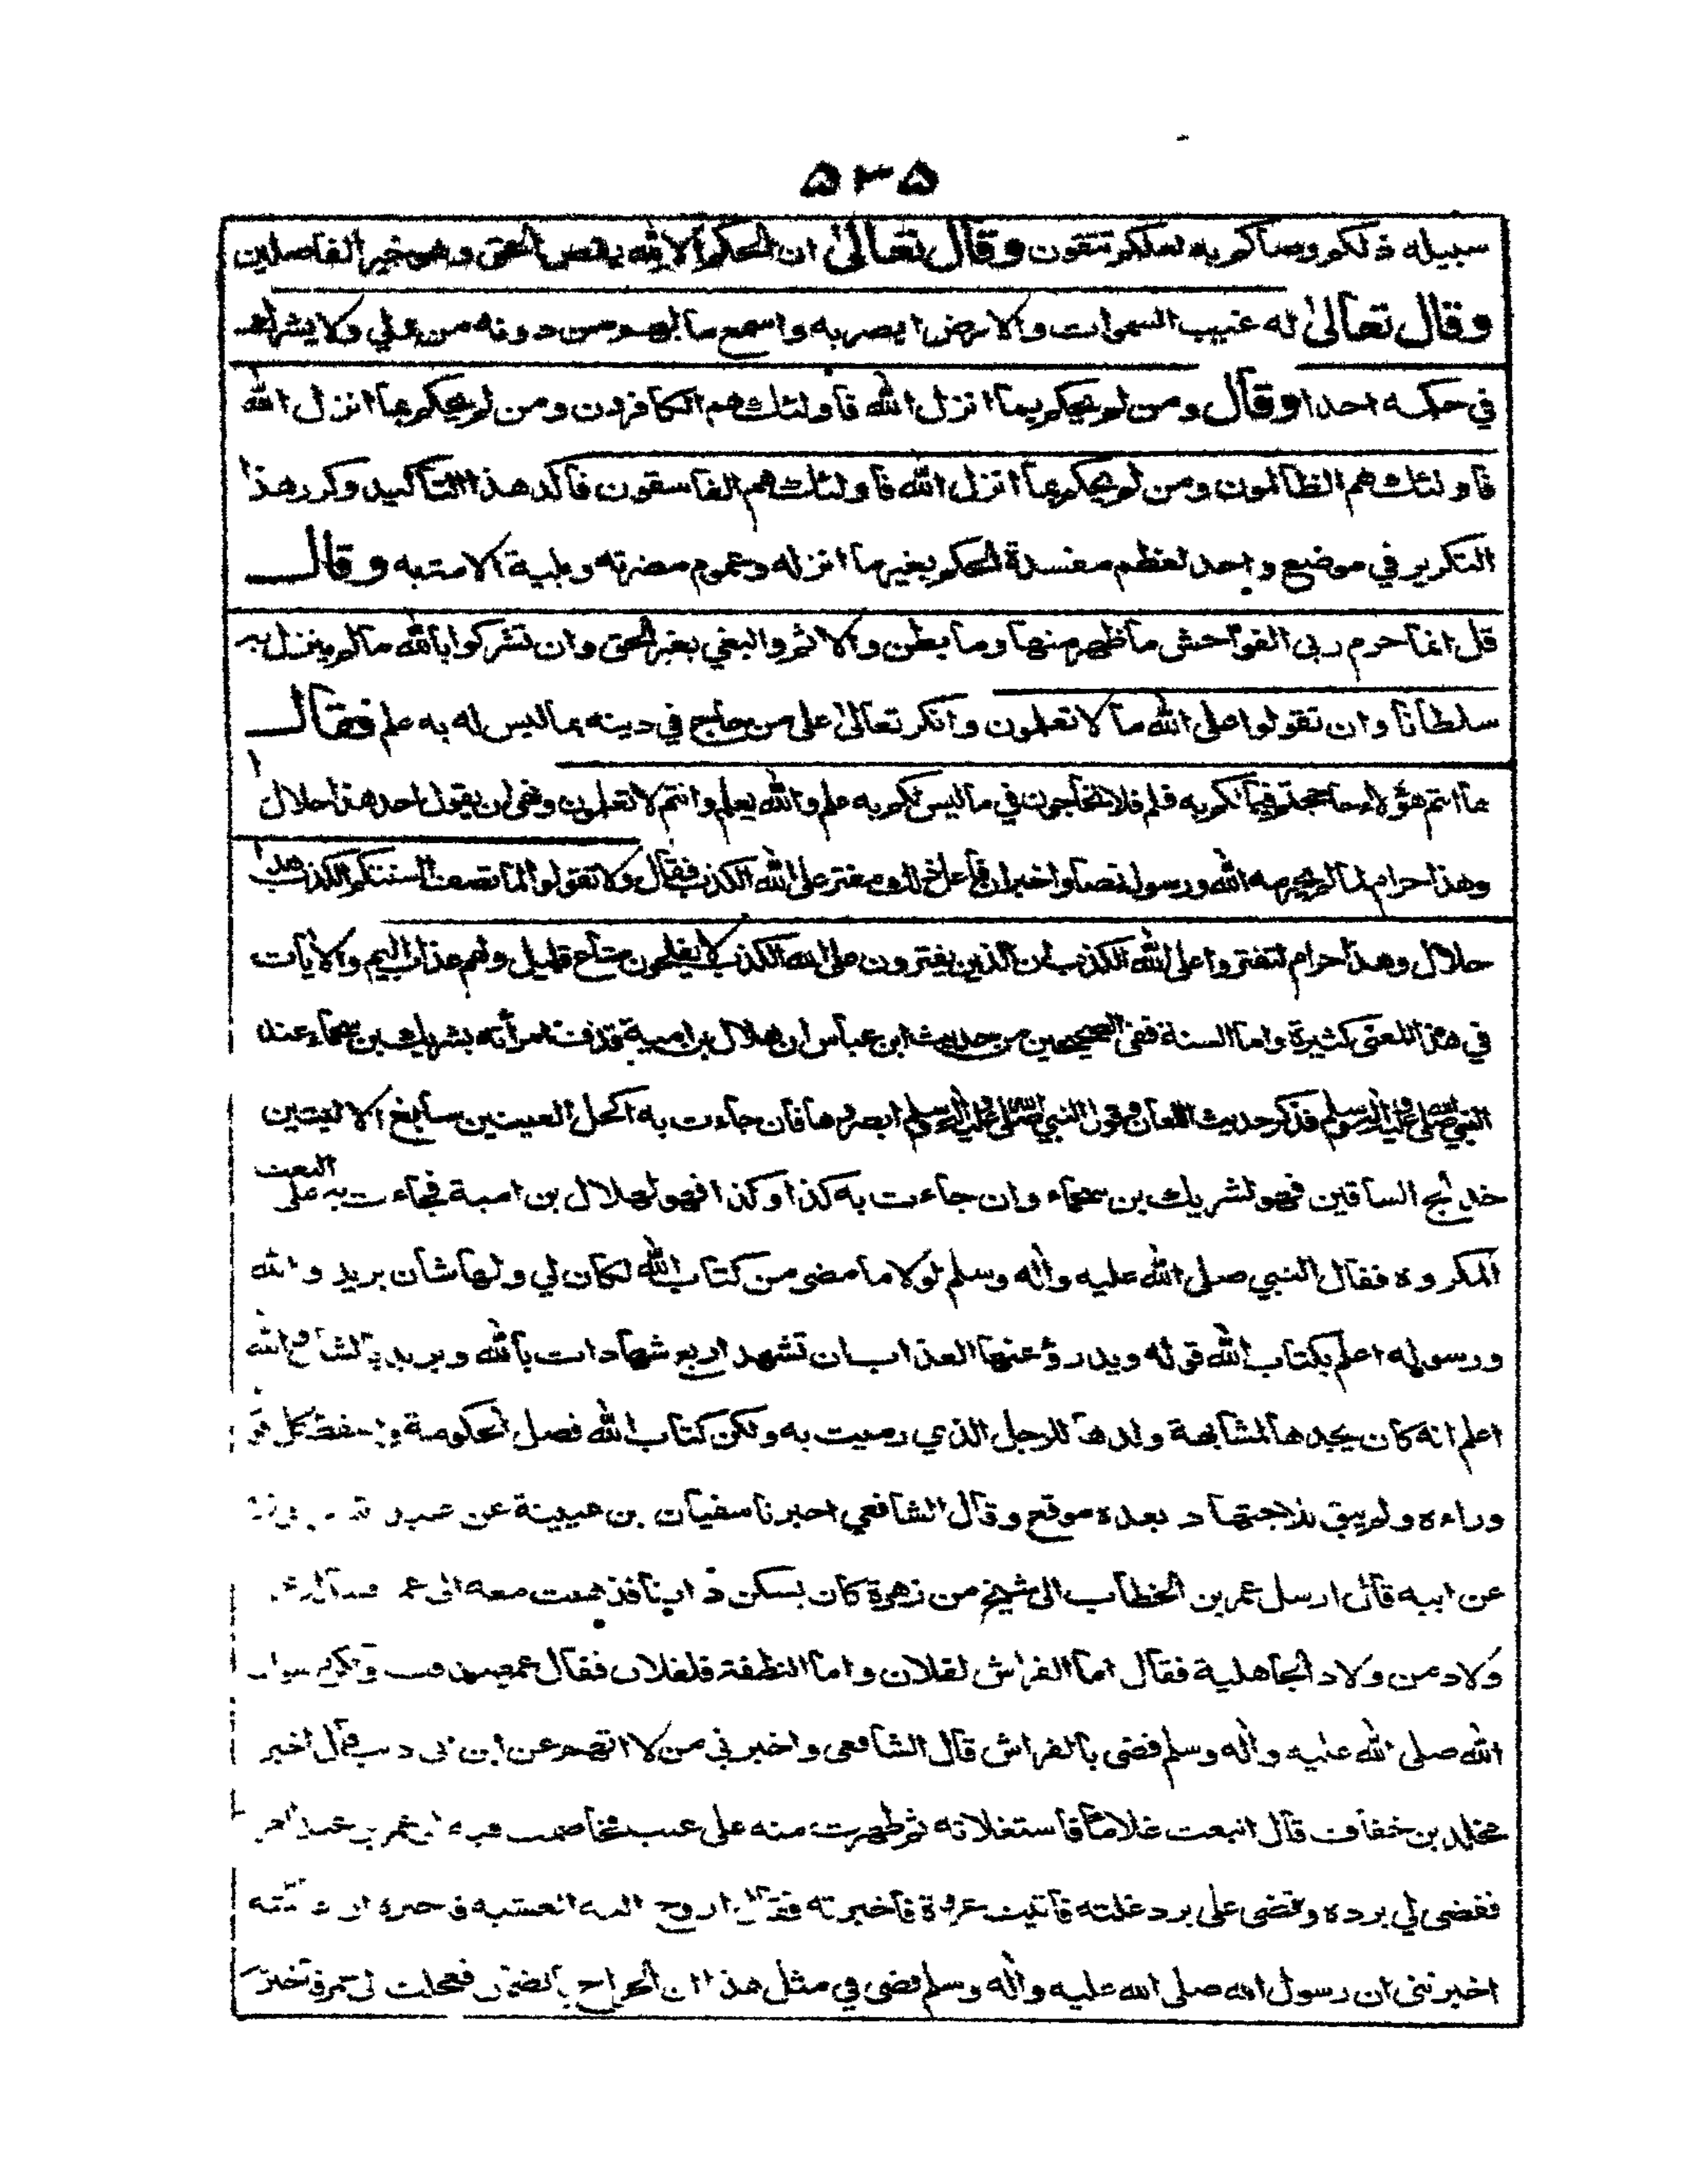 ۵۳۵
سبيله ذلكم وصاكم به لعلكم تتقون وقال تعالىٰ ان الحكم الا لله يقص الحق وهو خير الفاصلين
وقال تعالىٰ له غيب السموات والارض ابصر به واسمع ما لهم من دونه من ولي ولا يشرك
في حكمه احدا وقال ومن لم يحكم بما انزل الله فأولئك هم الكافرون ومن لم يحكم بما انزل الله
فأولئك هم الظالمون ومن لم يحكم بما انزل الله فأولئك هم الفاسقون فأكد هذا التأكيد وكرر هذا
التكرير في موضع واحد لعظم مفسدة الحكم بغير ما انزله وعموم مضرته وبلية الامة به وقال
قل انما حرم ربي الفواحش ما ظهر منها وما بطن والاثم والبغي بغير الحق وان تشركوا بالله ما لم ينزل به
سلطانا وان تقولوا على الله ما لا تعلمون وانكر تعالىٰ على من حاج في دينه بما ليس له به علم فقال
ها انتم هؤلاء حاججتم فيما لكم به علم فلا تحاجون في ما ليس لكم به علم والله يعلم وانتم لا تعلمون ونهى ان يقول احد هذا حلال
وهذا حرام لما لم يحرمه الله ورسوله نصا واخبر ان فاعل ذلك مفتر على الله الكذب فقال ولا تقولوا لما تصف السنتكم الكذب هذا
حلال وهذا حرام لتفتروا على الله الكذب ان الذين يفترون على الله الكذب لا يفلحون متاع قليل ولهم عذاب اليم والأيات
في هذا المعنى كثيرة واما السنة ففى الصحيحين من حديث ابن عباس ان هلال بن امية قذف امرأته بشريك بن سحماء عند
النبي صلى الله عليه وآله وسلم فذكر حديث اللعان وقول النبي صلى الله عليه وآله وسلم ابصروها فان جاءت به اكحل العينين سابغ الاليتين
خدلج الساقين فهو لشريك بن سحماء وان جاءت به كذا وكذا فهو لهلال بن امية فجاءت به على النعت
المكروه فقال النبي صلى الله عليه وأله وسلم لولا ما مضى من كتاب الله لكان لي ولها شان يريد والله
ورسوله اعلم بكتاب الله قوله ويدرؤ عنها العذاب ان تشهد اربع شهادات بالله ويريد بالشان والله
اعلم انه كان يحدها لمشابهة ولدها للرجل الذي رميت به ولكن كتاب الله فصل الحكومة واسقط كل قول
وراءه ولم يبق للاجتهاد بعده موقع وقال الشافعي اخبرنا سفيان بن عيينة عن
عن ابيه قال ارسل عمر بن الخطاب الى شيخ من زهرة كان يسكن دارنا فذهبت معه الى عمر
ولاد من ولاد الجاهلية فقال اما الفراش لفلان واما النطفة فلفلان فقال عمر
الله صلى الله عليه وأله وسلم قضى بالفراش قال الشافعى واخبرني من لا اتهم عن ابن
مخلد بن خفاف قال ابتعت غلاما فاستغللته ثم ظهرت منه على عيب فخاصمت فيه الى عمر بن عبد
فقضى لي برده وقضى على برد غلته فأتيت عروة فأخبرته فقال اروح اليه العشية فاخبره ان
اخبرتنى ان رسول الله صلى الله عليه وأله وسلم قضى في مثل هذا ان الخراج بالضمان فعجلت